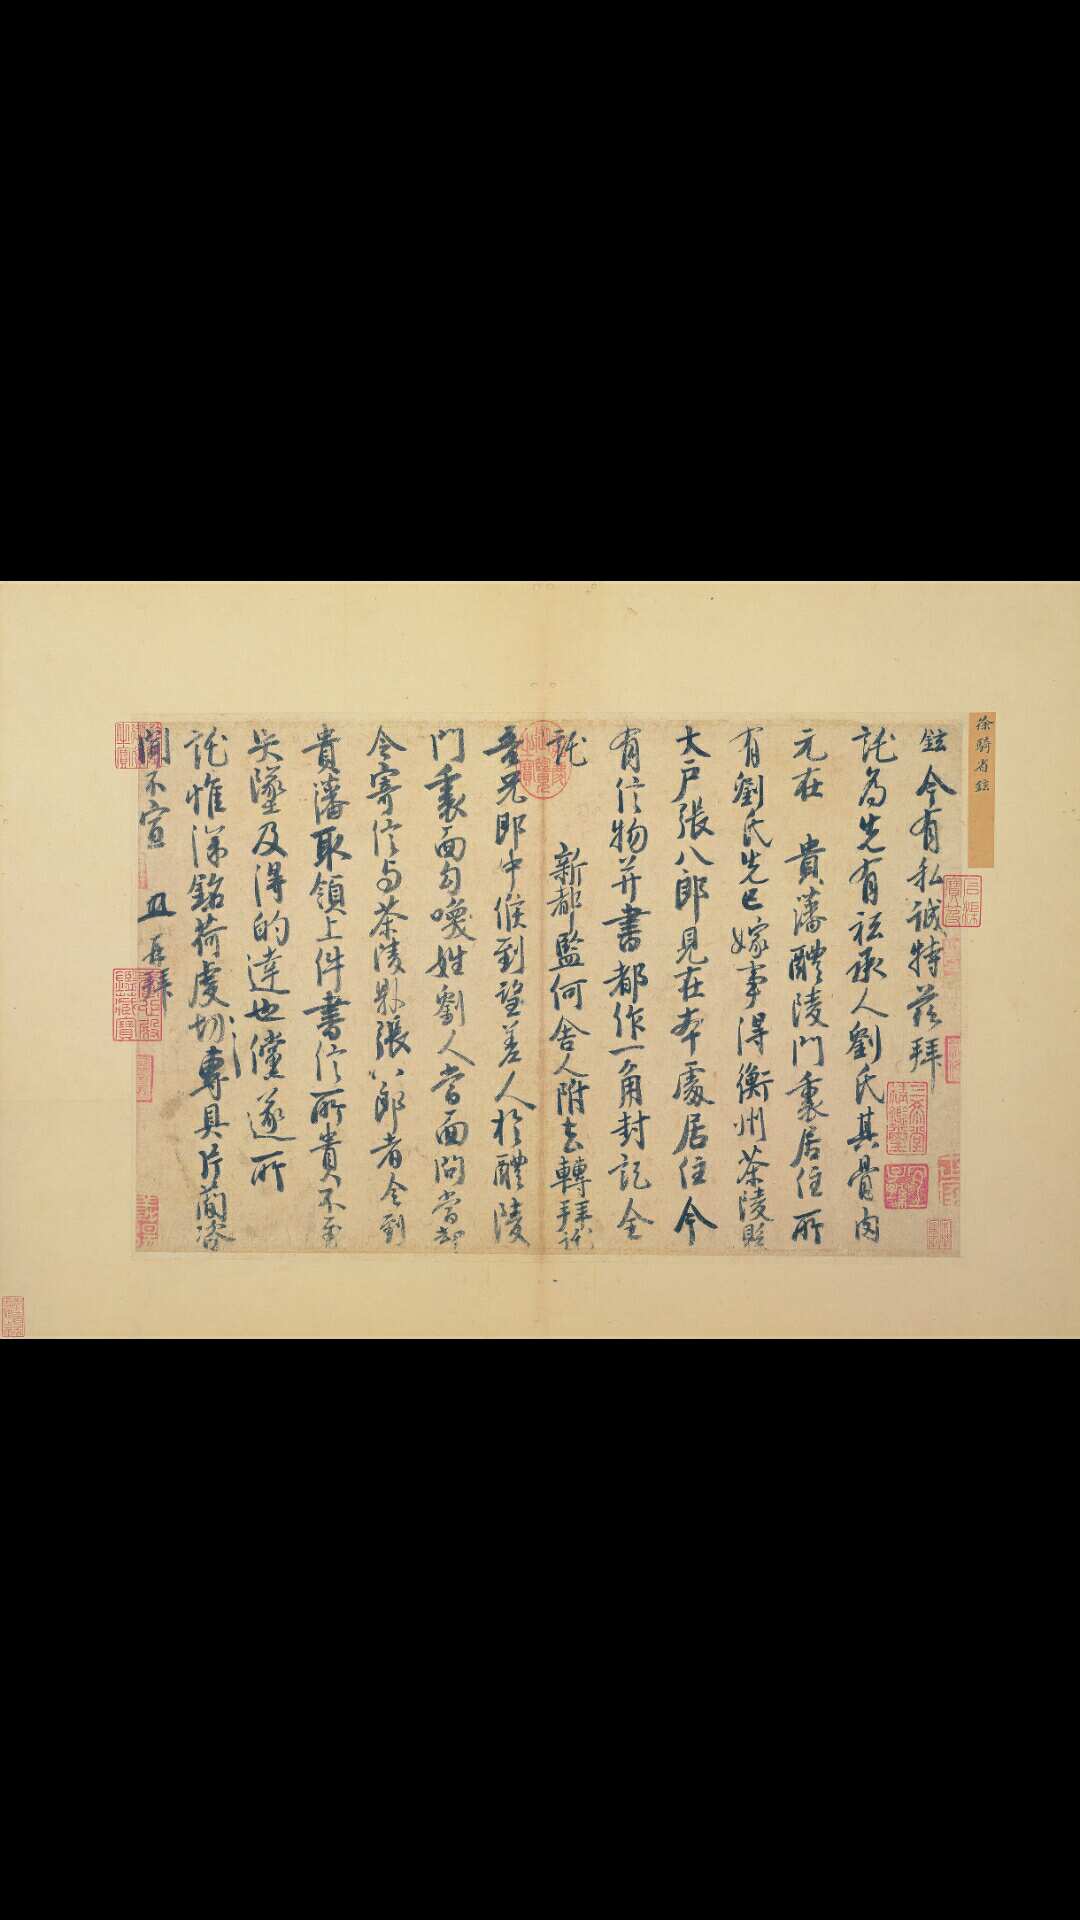 徐騎省鉉
鉉今有私誠特茲拜
託為先有祗承人劉氏其骨肉
元在 貴藩醴陵門裏居住所
有劉氏先已嫁事得衡州茶陵縣
大戶張八郎見在本處居住今
有信物并書都作一角封記全
託 新都監何舍人附去轉拜託
吾兄郎中候到望差人於醴陵
門裏面勾喚姓劉人當面問當却
令寄信与茶陵縣張八郎者令到
貴藩取領上件書信所貴不至
失墜及得的達也儻遂所
託惟深銘荷虔切專具片簡諮
聞不宣 且再拜